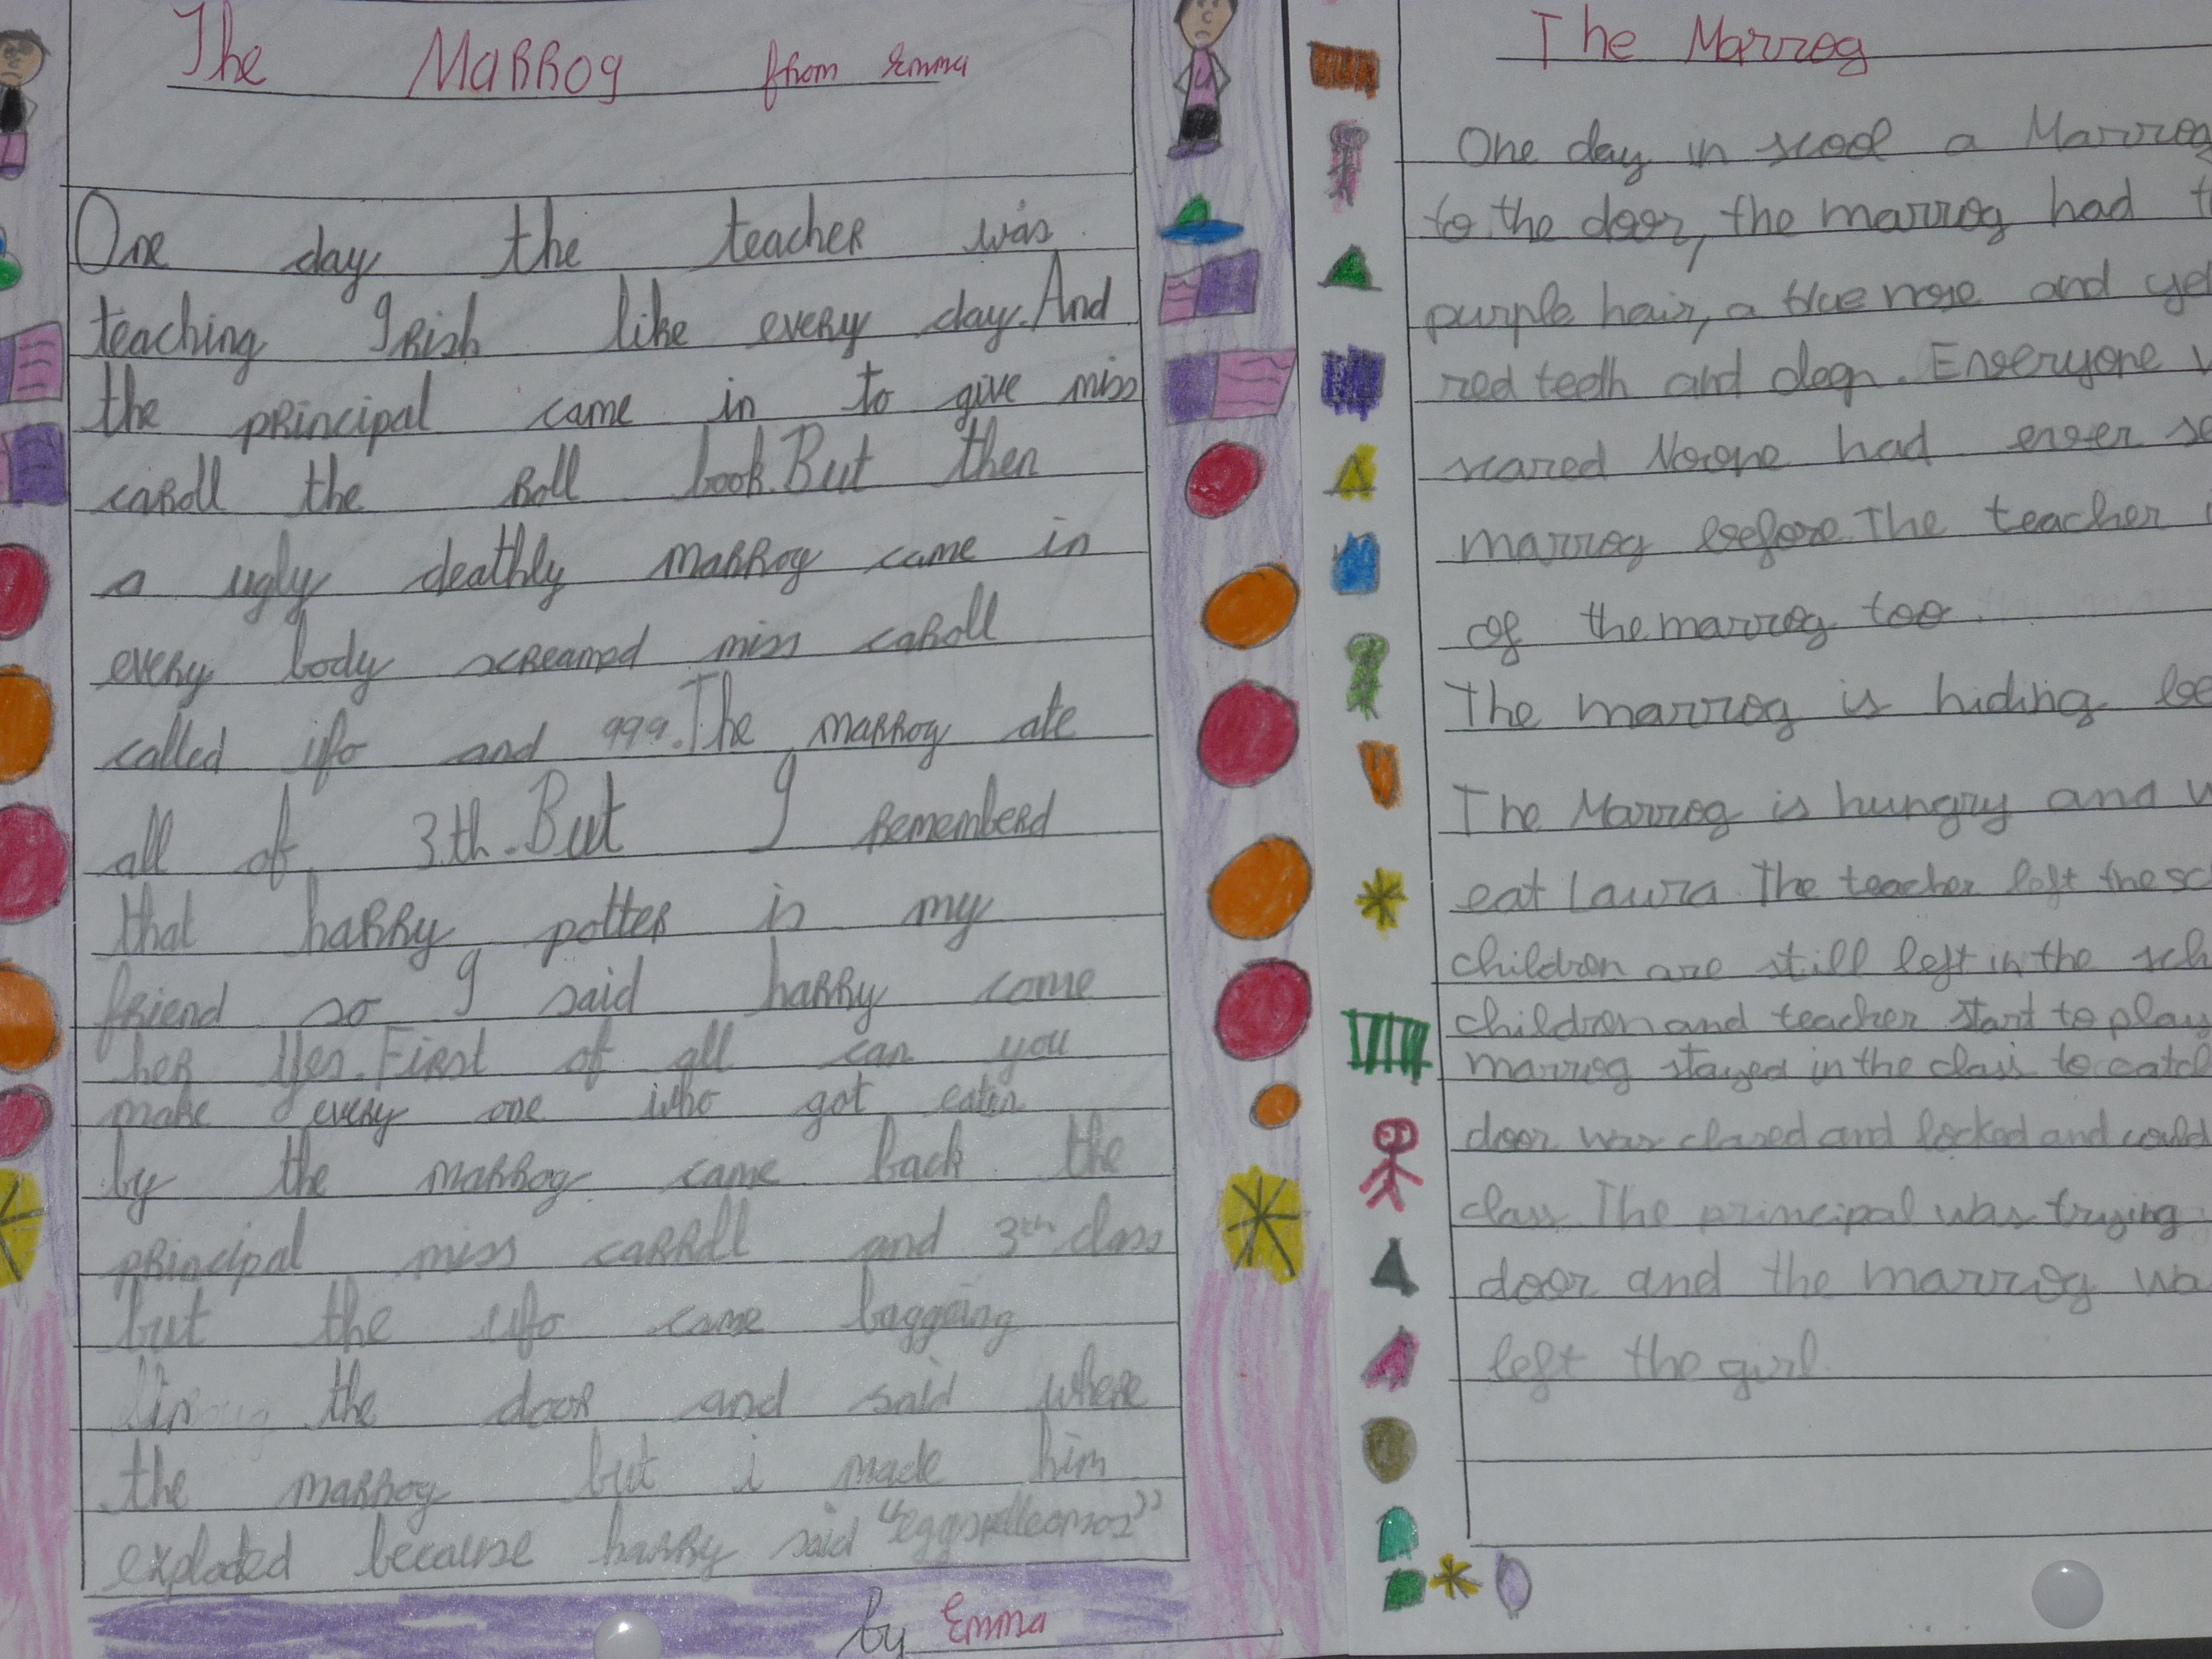 The Marrog from Emma
One day the teacher was
teaching Irish like every day. And
the principal came in to give miss
caroll the Roll book. But then
a ugly deathly marrog came in
every body screamed miss caroll
called ufo and 999. The marrog ate
all of 3.th. But I rememberd
that harry potter is my
friend so I said harry come
her Yes. First of all can you
make every one who got eaten
by the marrog came back the
principal miss carroll and 3th class
but the ufo came baggeing
the door and said where
the marrog but i made him
exploded because harry said
by Emma
The Marrog
One day in scool a Marrog
to the door, the marrog had
purple hair, a blue nose and
red teeth and . Enveryone
scared Noone had enver
marrog before. The teacher
of the marrog too.
The marrog is hiding
The Marrog is hungry and
eat Laura. The teacher left the
children are still left in the
children and teacher start to play
marrog stayed in the class to
door was closed and locked and could
class. The principal was trying
door and the marrog
left the girl.